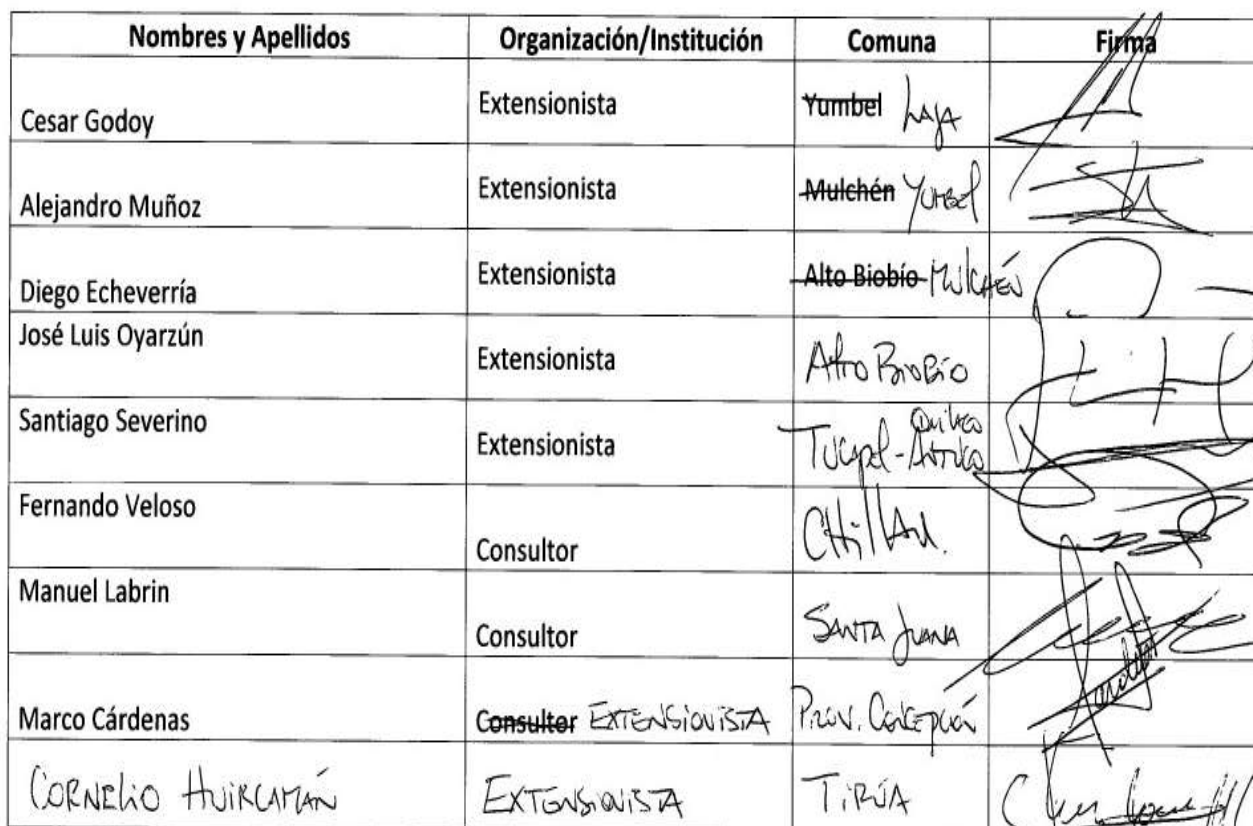 Nombres y Apellidos Organización/Institución Comuna Firma
Cesar Godoy Extensionista Yumbel Laja
Alejandro Muñoz Extensionista Mulchén Yumbel
Diego Echeverría Extensionista Alto Biobío Mulchén
José Luis Oyarzún Extensionista Alto Biobío
Santiago Severino Extensionista Tucapel - Quilleco Antuco
Fernando Veloso Consultor Chillan.
Manuel Labrin Consultor Santa Juana
Marco Cárdenas Consultor EXTENSIONISTA Prov. Concepción
CORNELIO HUIRCAMÁN EXTENSIONISTA TIRÚA